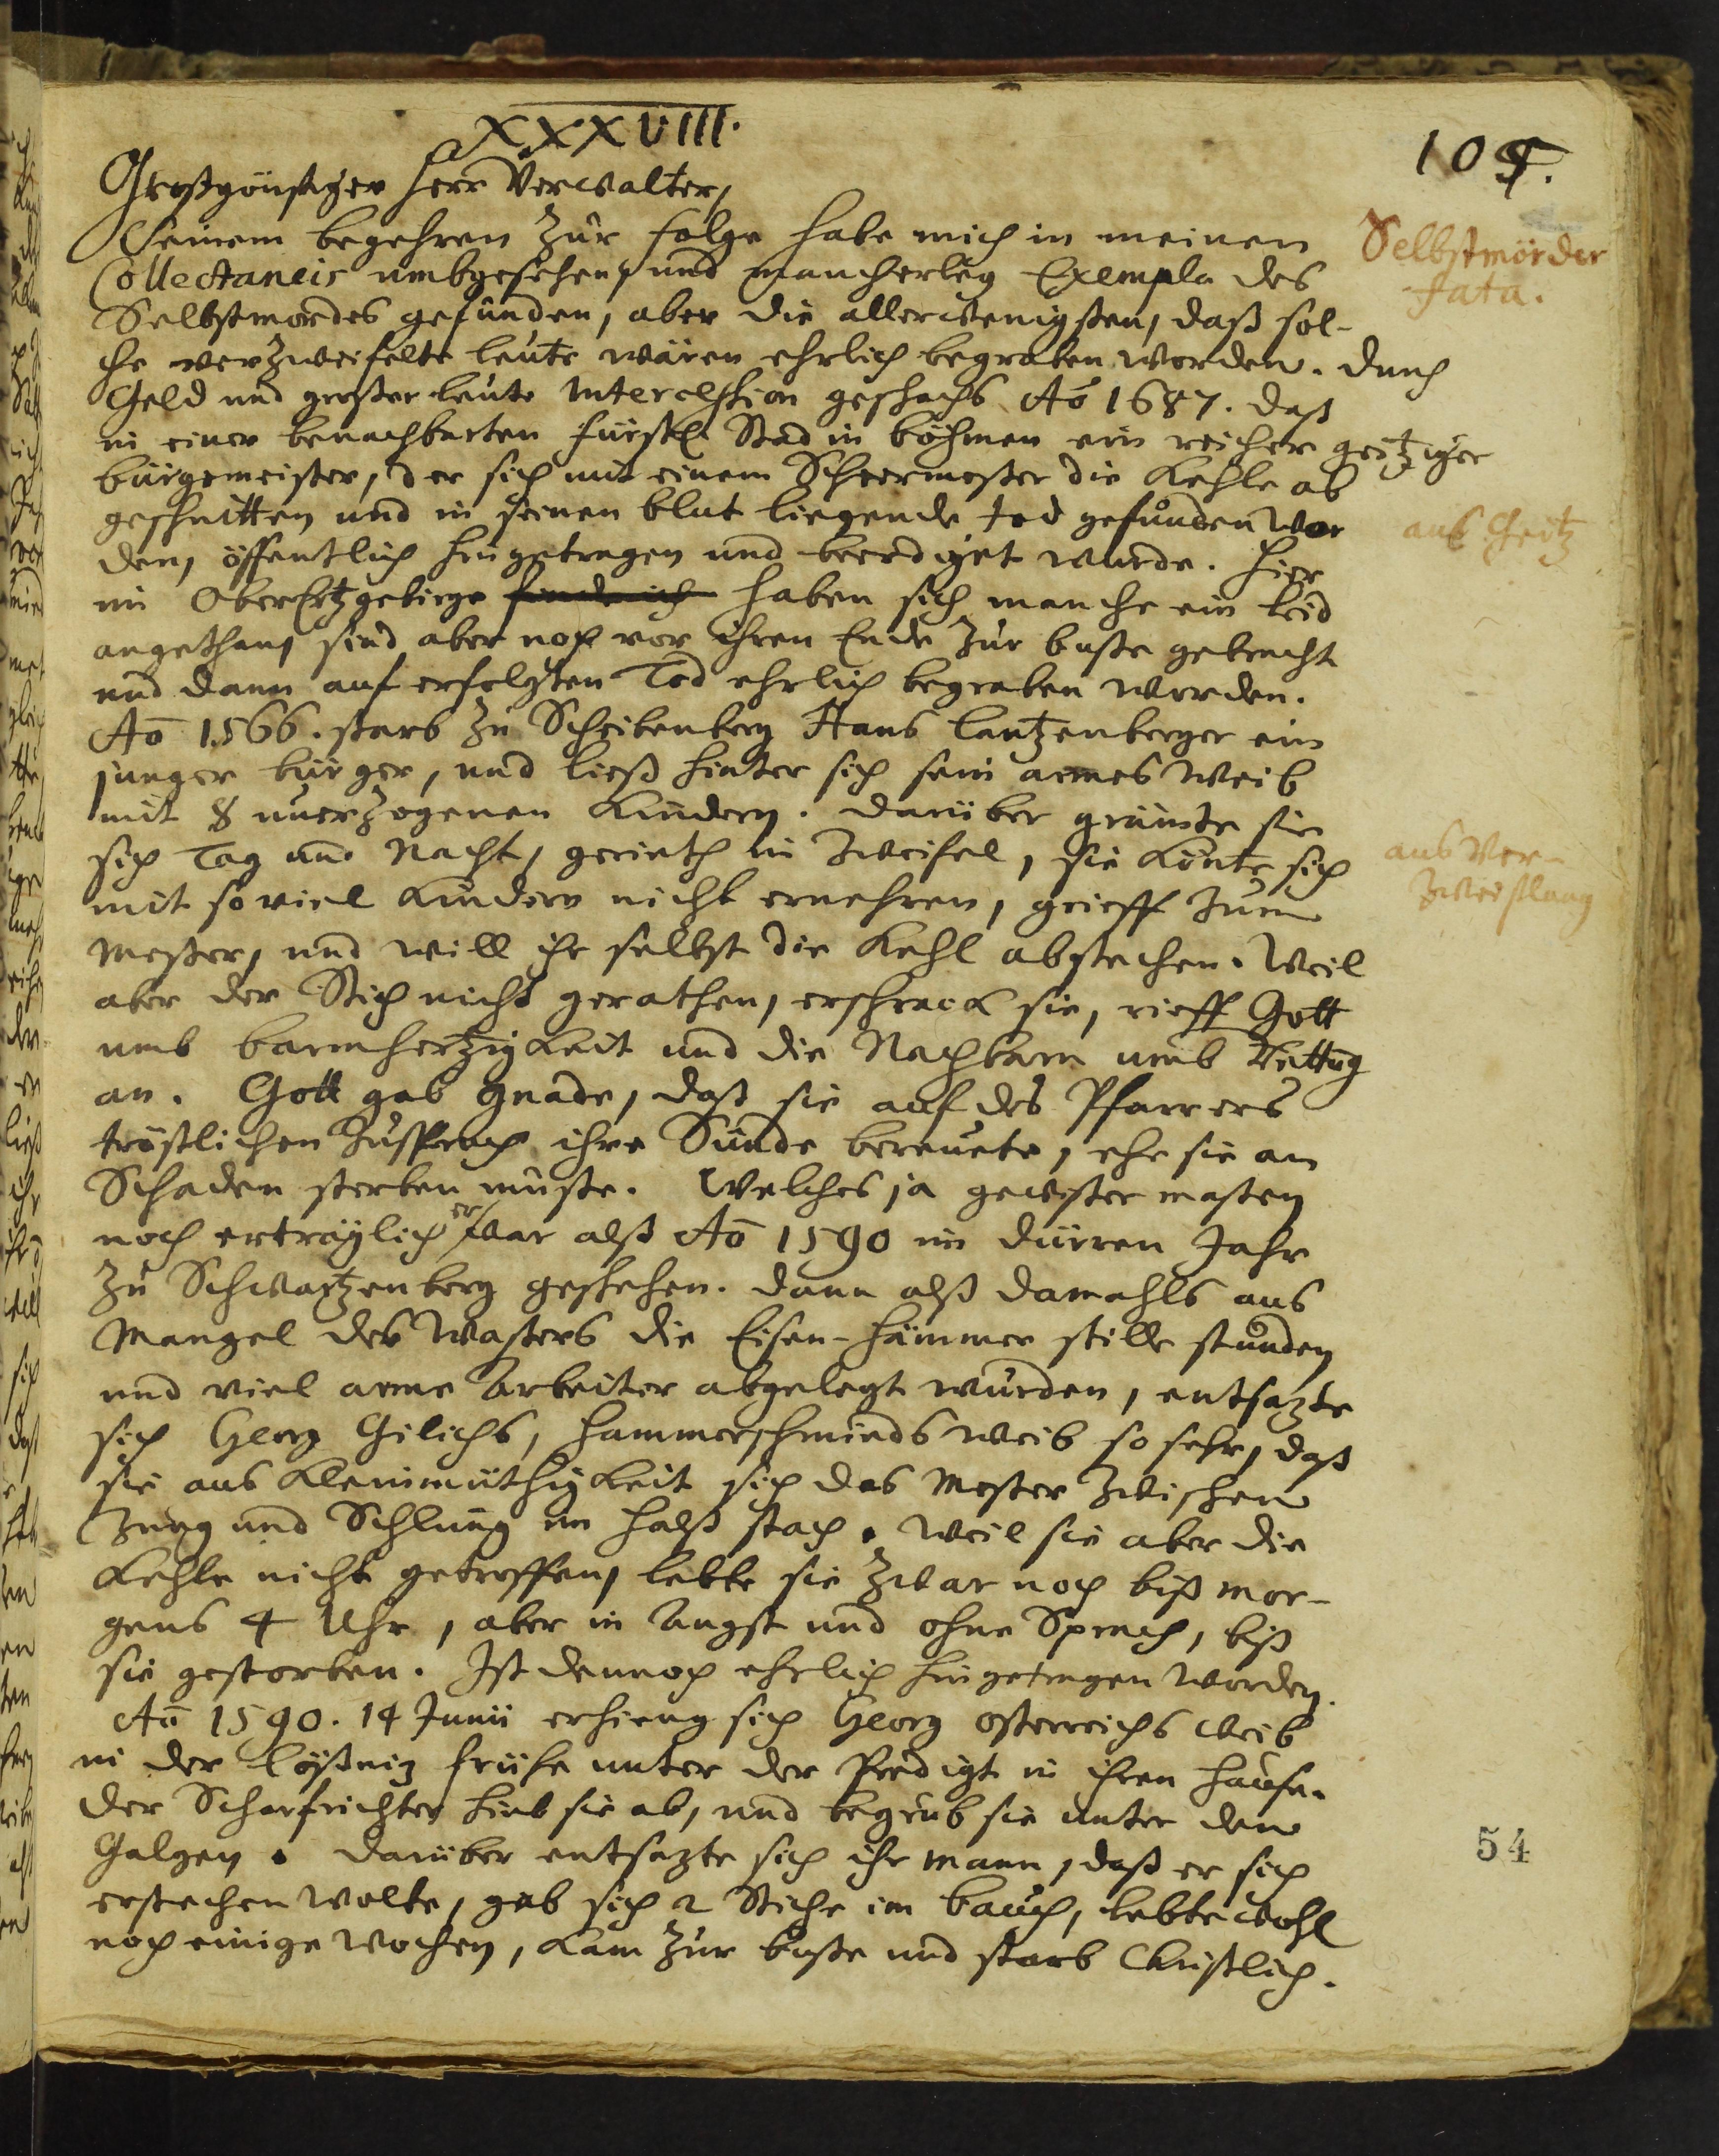 XXXVIII.
105.
Großgönstiger Herr Verwalter,
Seinem begehren zur folge habe mich in meinen
Collectaneis umbgesehen, und mancherley Exempla des
Selbstmordes gefunden, aber die allerwenigsten, daß sol-
che verzweifelte leute wären ehrlich begraben worden. durch
Geld und großer leute Intercession geschachs Aõ 1687. daß
in einer benachbarten fürstl. Stad in böhmen ein reicher geitziger
bürgemeister, der sich mit einem Scheermeßer die Kehle ab
geschnitten und in seinen blut liegende tod gefunden wor
den, öffentlich hingetragen und beerdiget wurde. Hier
im OberErtzgebirge finde ich haben sich manche ein leid
angethan, sind aber noch vor ihren Ende zur buße gebracht
und dann auf erfolgten Tod ehrlich begraben worden.
Aõ 1566. starb zu Scheibenberg Hans lantzenberger ein
junger bürger, und ließ hinter sich sein armes Weib
mit 8 unerzogenen Kindern. darüber grämte sie
sich Tag und Nacht, gerieth in Zweifel, sie könte sich
mit so viel Kindern nicht ernehren, grieff zum
Meßer, und will ihr selbst die Kehl abstechen. Weil
aber der Stich nicht gerathen, erschrack sie, rieff Gott
umb barmhertzigkeit und die Nachbarn umb Rettug
an. Gott gab gnade, daß sie auf des Pfarrers
tröstlichen Zuspruch ihre Sünde bereuete, ehe sie am
Schaden sterben muste. Welches ja gewißer maßen
noch erträglicher war alß Aõ 1590 im dürren Jahr
zu Schwartzenberg geschehen. dann alß damahls aus
Mangel des Waßers die Eisen-Hämmer stille stunden
und viel arme Arbeiter abgelegt wurden, entsazte
sich Georg Gilichs, Hammerschmieds Weib so sehr, daß
sie aus Kleinmüthigkeit sich das Meßer zwischen
Zung und Schlung im Halß stach. Weil sie aber die
Kehle nicht getroffen, lebte sie zwar noch biß mor-
gens 4 Uhr, aber in Angst und ohne Sprach, biß
sie gestorben. Ist dennoch ehrlich hingetragen worden.
Aõ 1590. 14 Junii erhieng sich Georg Osterreichs Weib
in der Lößniz frühe unter der Predigt in ihren Hause.
Der Scharfrichter hieb sie ab, und begrub sie unter den
Galgen. Darüber entsazte sich ihr Mann, daß er sich
erstechen wolte, gab sich 2 Stiche im bauch, lebte wohl
noch einige Wochen, kam zur buße und starb Christlich.
Selbstmörder
fata.
aus Geitz
aus Ver-
zweiflung
54